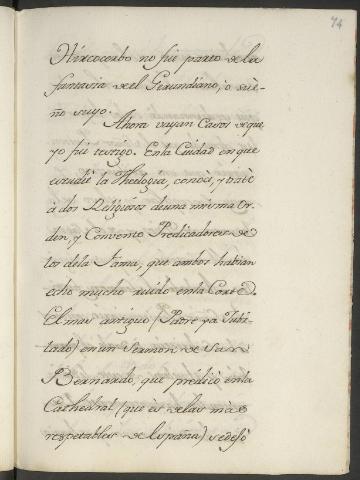 74
Hircocerbo no fue parto de la
fantasia de el Gerundiano, ó sue-
ño suyo.
Ahora vayan Casos de que
yo fui testigo. En la Ciudad en que
estudiè la Theologia, conocì, y tratè
à dos Religiosos de una misma Or-
den, y Convento Predicadores de
los de la Fama, que ambos habian
echo mucho ruido en la Corte.
El mas antiguo (Padre ya Jubi-
lado) en un Sermon de San
Bernardo, que predicò en la
Cathedral (que ès de las mà s
respetables de España) se dejò